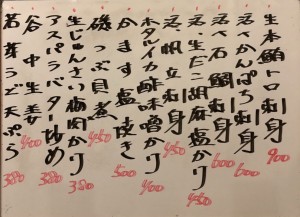 生本鮪トロ刺身 900
活〆かんぱち刺身 600
活〆石鯛刺身 600
活、生だこ胡麻塩かり 450
活、帆立刺身 450
ホタルイカ酢味噌かり 400
かます塩焼き 500
磯つぶ貝煮 450
生じゅんさい梅肉かり 380
アスパラバター炒め 380
谷中生姜 400
若芽うど天ぷら 380